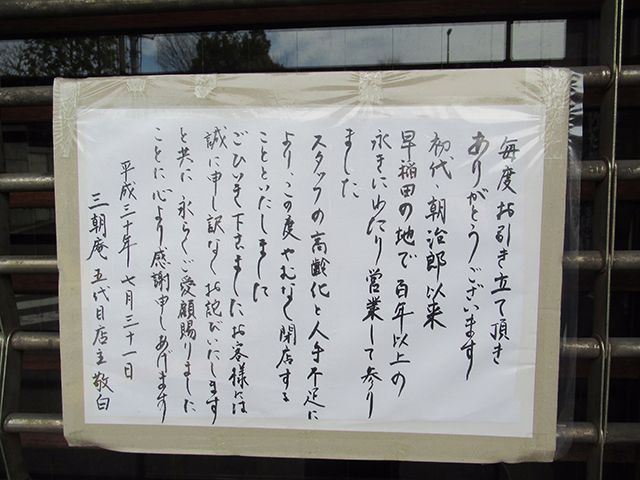 毎度お引き立て頂き
ありがとうございます
初代・朝治郎以来
早稲田の地で百年以上の
永きにわたり営業して参り
ました
スタッフの高齢化と人手不足に
より、この度やむなく閉店する
ことといたしました
ごひいき下さいましたお客様には
誠に申し訳なくお詫びいたします
と共に永らくご愛顧賜りました
ことに心より感謝申しあげます
平成三十年七月三十一日
三朝庵 五代目店主 敬白